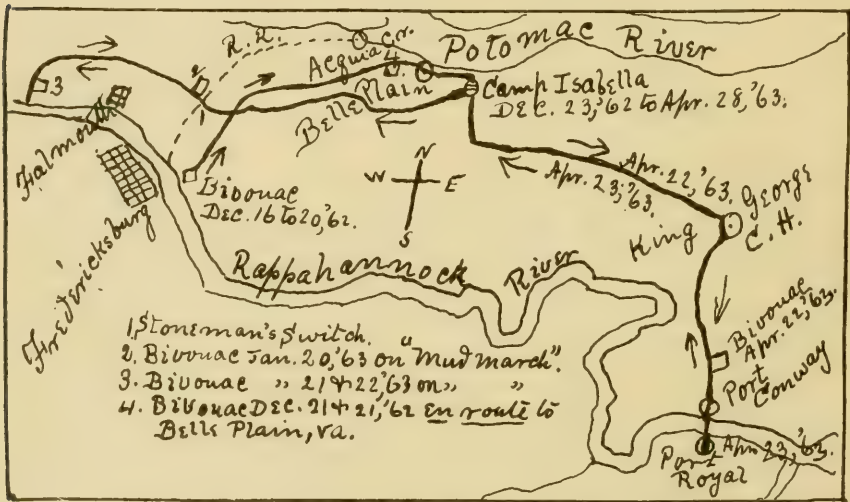 R.R.
Acquia Cr.
Potomac River
3
2
4
1
Belle Plain
Camp Isabella
Dec. 23,'62 to Apr. 28,'63.
Falmouth
Fredericksburg
Bivouac
Dec. 16 to 20,'62.
N
W E
S
Apr. 22,'63.
Apr. 23,'63.
King George
C.H.
Rappahannock River
Bivouac
Apr. 22,'63.
Port
Conway
Apr. 23,'63.
Port
Royal
1, Stoneman's Switch.
2. Bivouac Jan. 20,'63 on "Mud march".
3. Bivouac " 21 & 22,'63 on " "
4. Bivouac Dec. 21 & 21,'62 En route to
Belle Plain, Va.